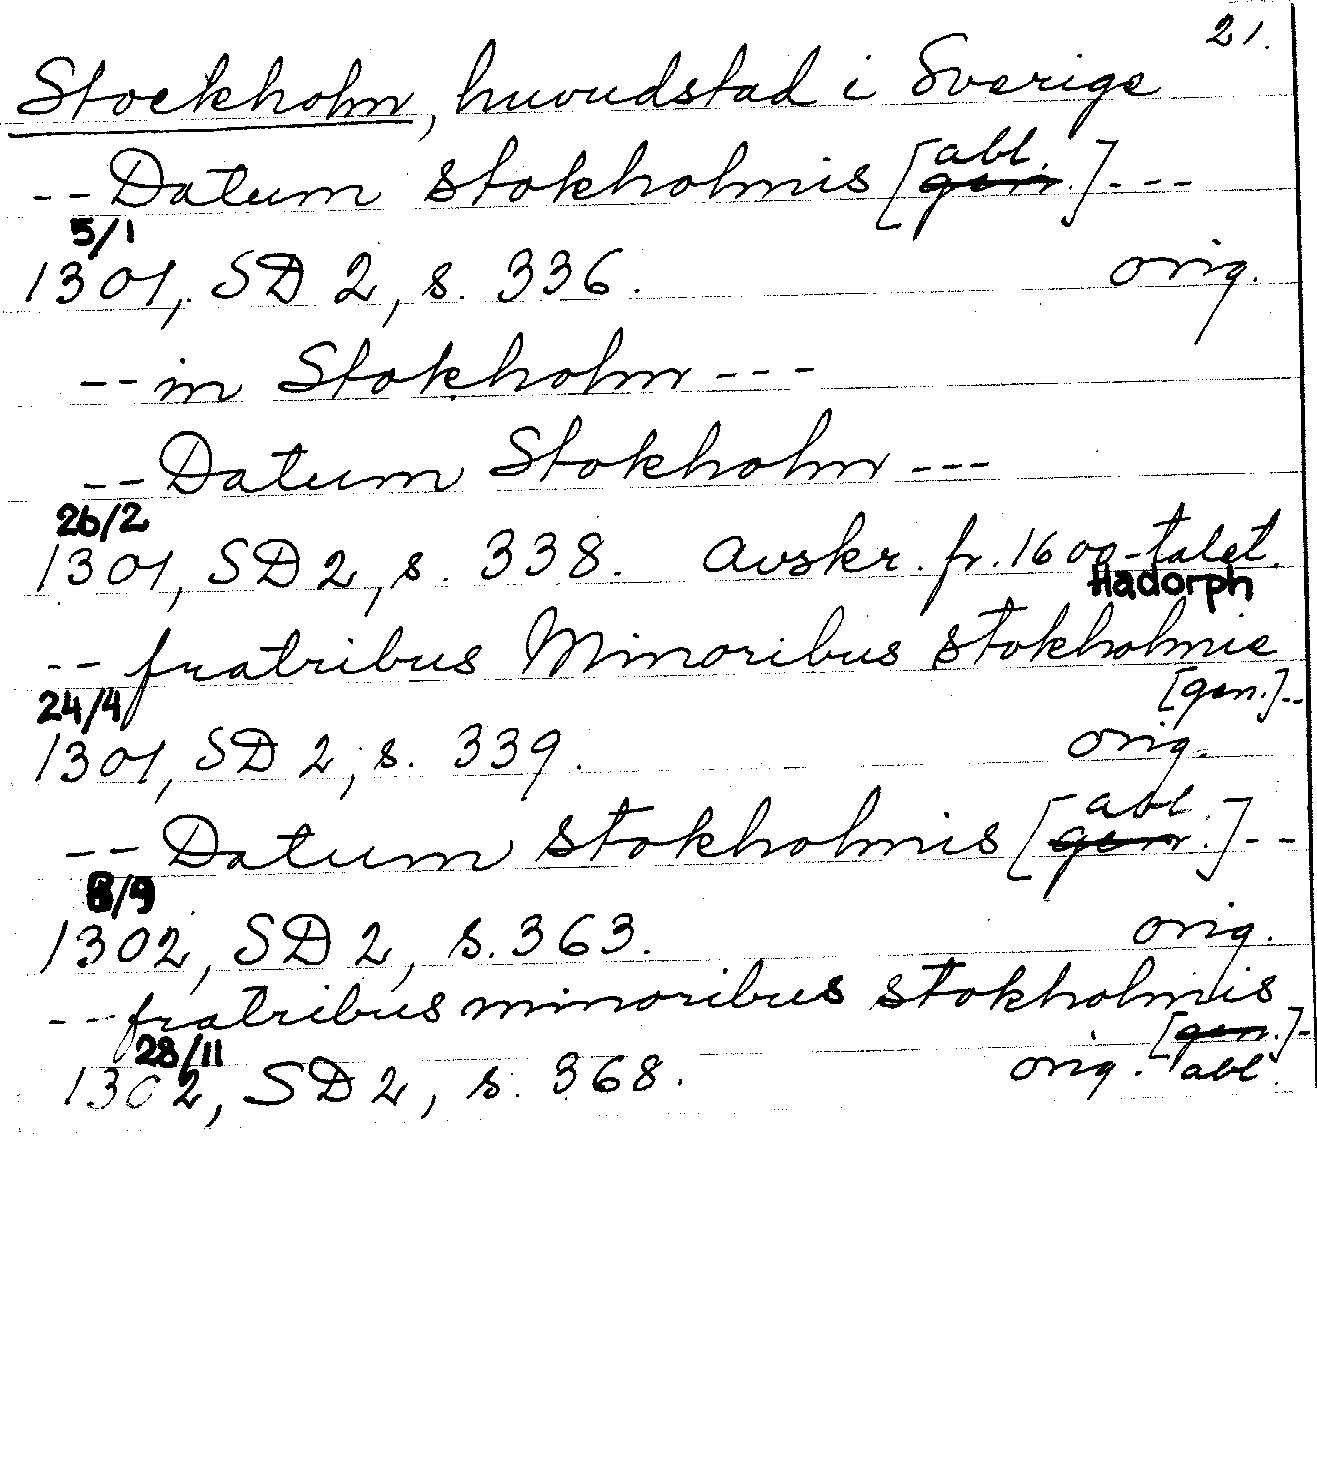 21.
Stockholm, huvudstad i Sverige
-- Datum stokholmis [gen. abl.] ---
5/1
1301, SD 2, s. 336. orig.
-- in Stokholm ---
-- Datum Stokholm ---
26/2
1301, SD 2, s. 338. Avskr. fr. 1600-talet.
Hadorph
-- fratribus Minoribus stokholmie
[gen.]--
24/4
1301, SD 2, s. 339. orig.
-- Datum stokholmis [gen. abl.] --
8/9
1302, SD 2, s. 363. orig.
-- fratribus minoribus stokholmis
[gen.]-
28/11
1302, SD 2, s. 368. orig. abl.